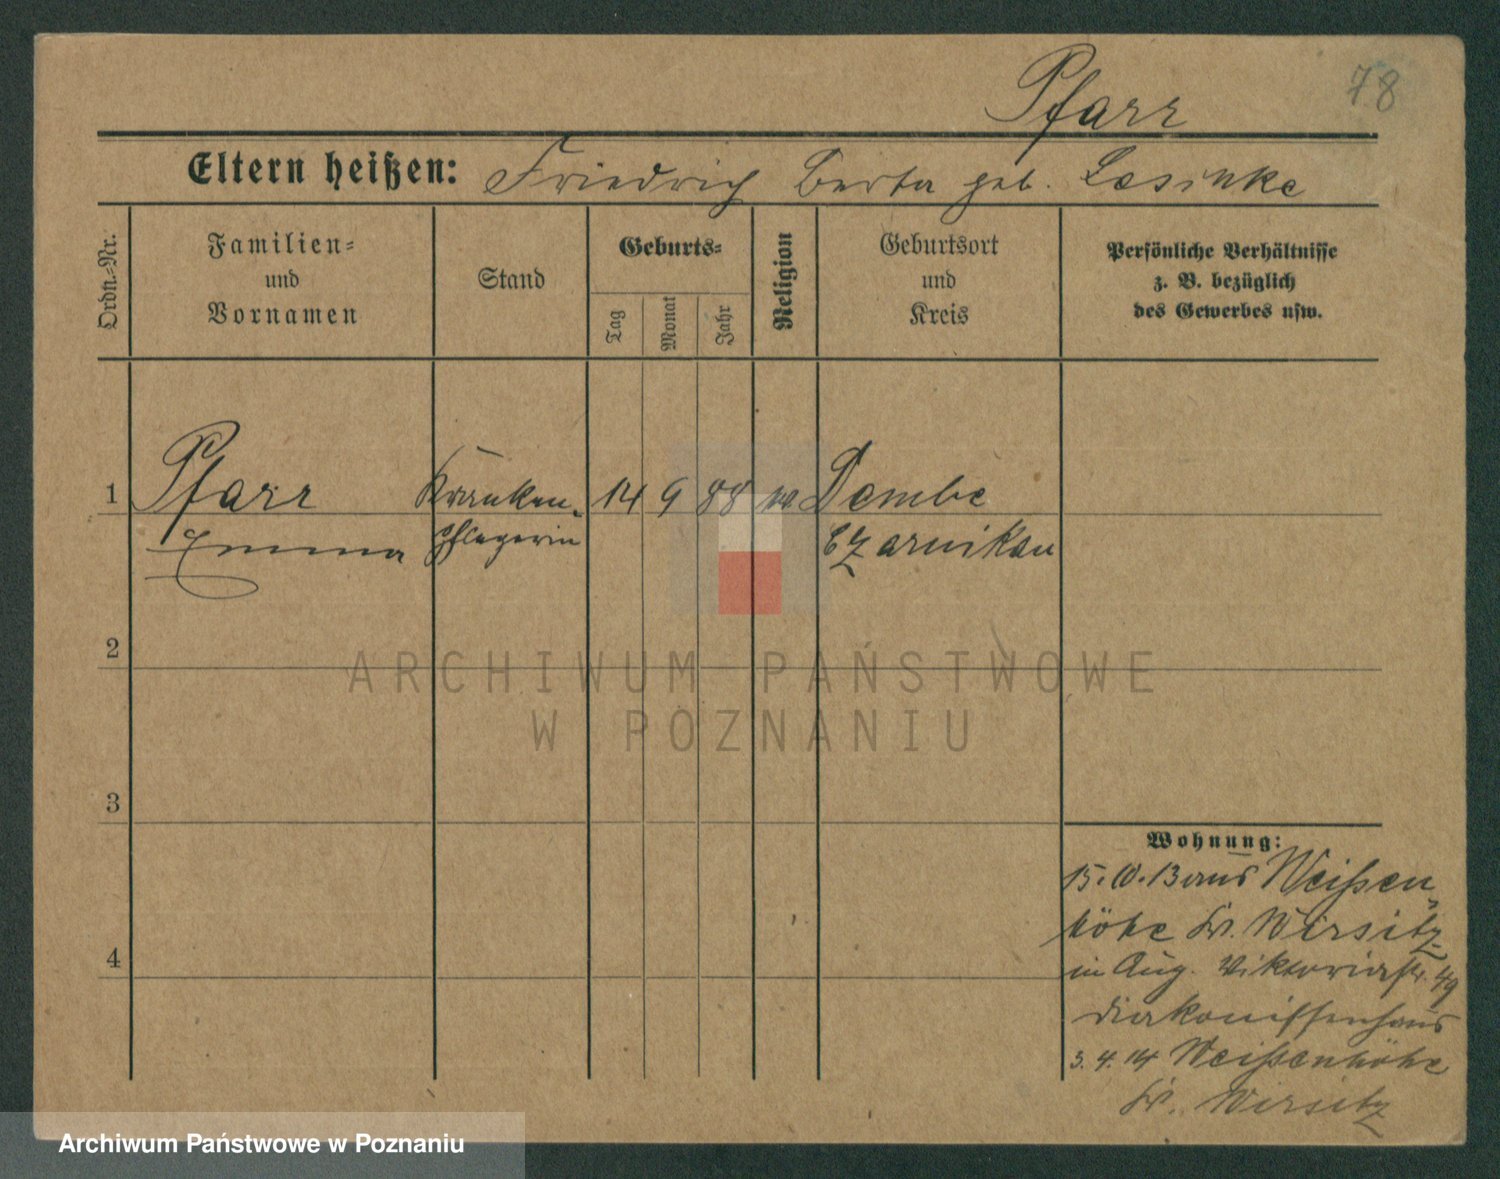 78
Pfarr
Eltern heißen: Friedrich Berta geb. Lesinke
Ordn.-Nr.
Familien-
und
Vornamen
Stand
Geburts-
Tag
Monat
Jahr
Religion
Geburtsort
und
Kreis
Persönliche Verhältnisse
z. B. bezüglich
des Gewerbes usw.
1 Pfarr Kranken- 14 9 88 Dembe
Emma pflegerin Czarnikau
2
3
4
Wohnung:
15.10.13 aus Weißen-
höhe Kr. Wirsitz
in Aug. Viktoriastr. 49
Diakonissenhaus
3.4.14 Weißenhöhe
Kr. Wirsitz
ARCHIWUM PAŃSTWOWE
W POZNANIU
Archiwum Państwowe w Poznaniu